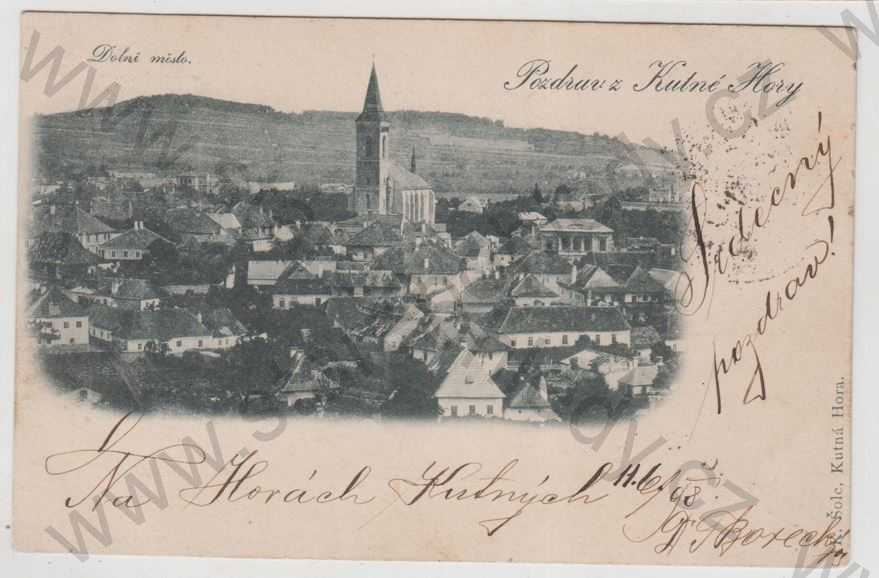 Dolní město.
Pozdrav z Kutné Hory
Srdečný
pozdrav!
Na Horách Kutných 11.6/98
Borecký
Šolc, Kutná Hora.